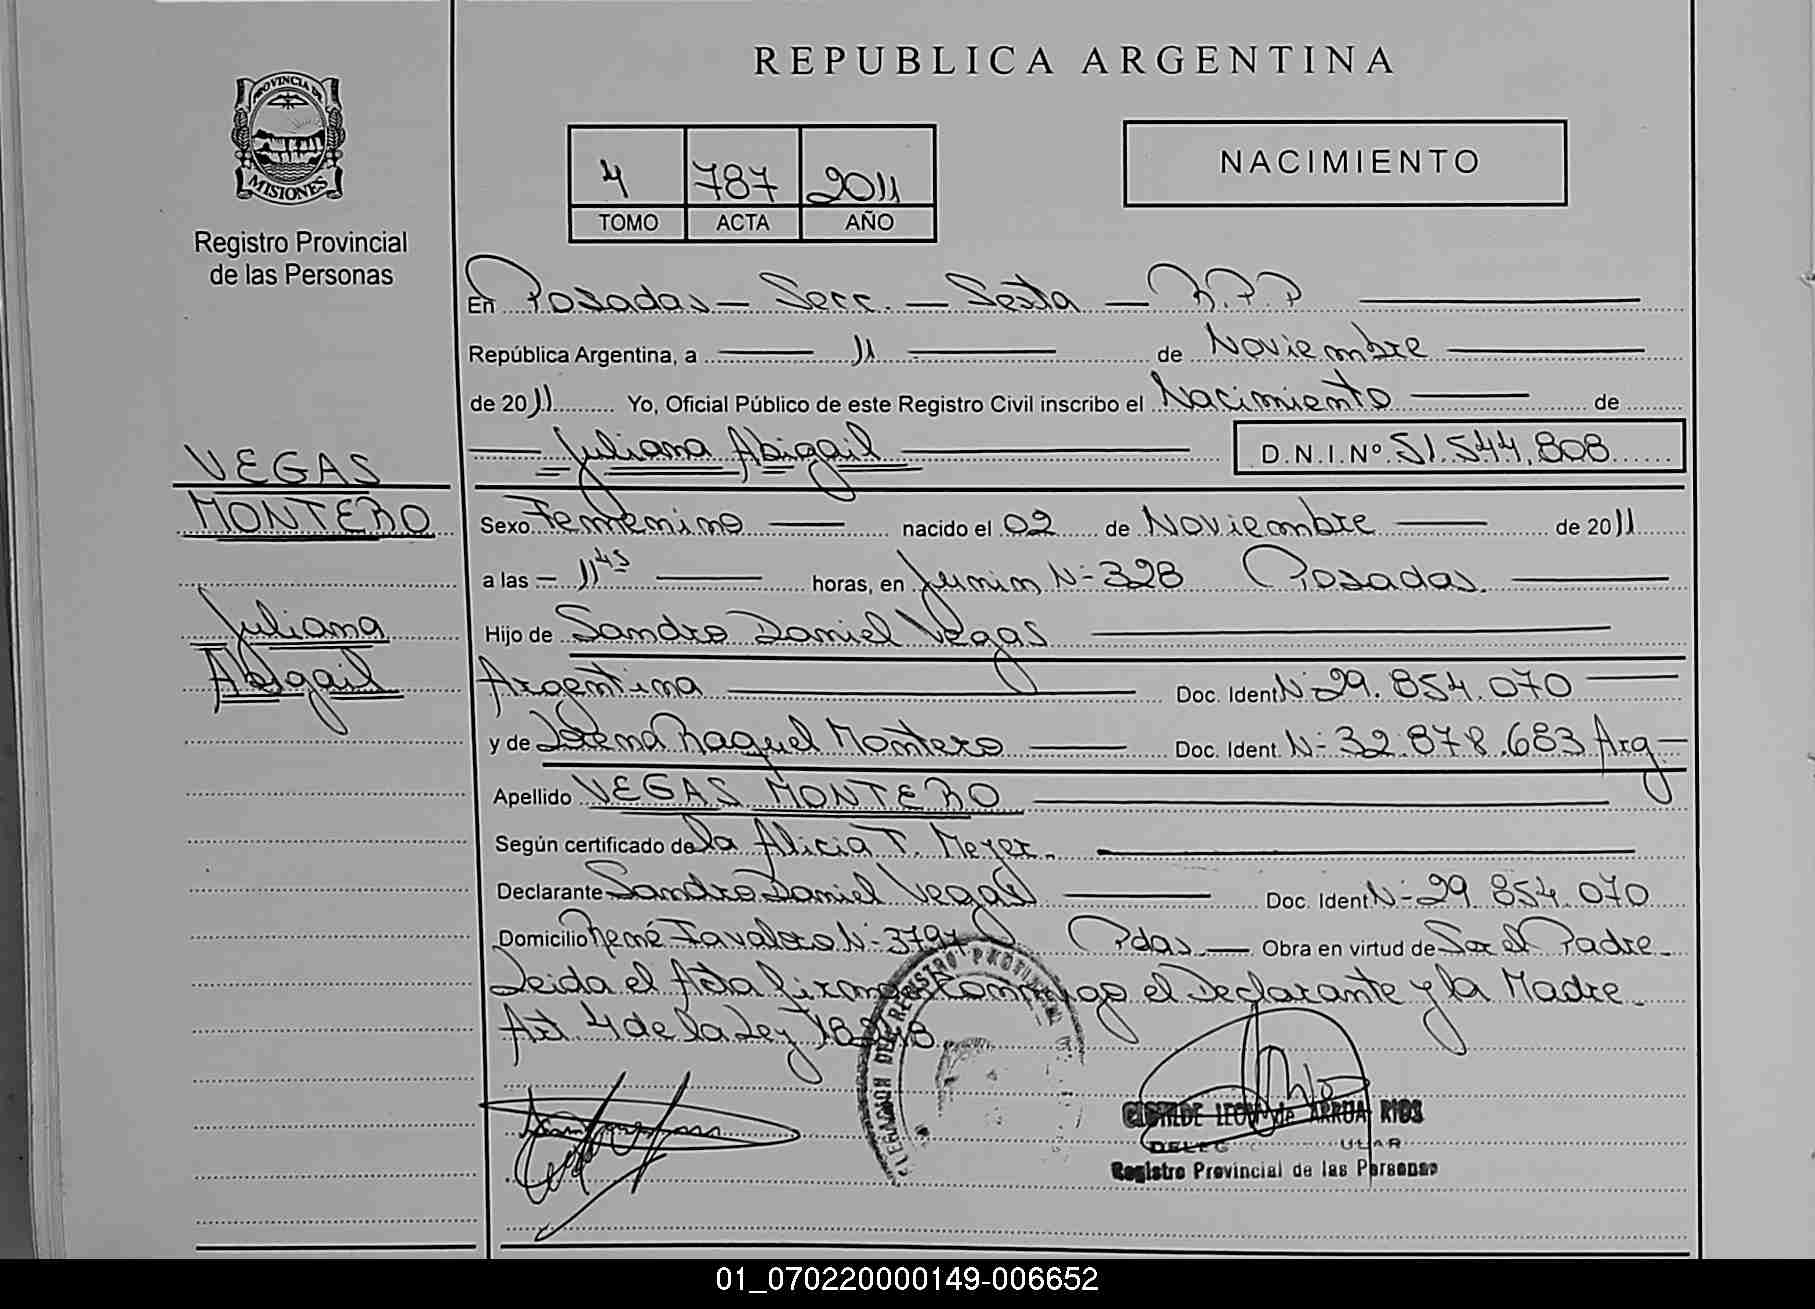 REPUBLICA ARGENTINA
PROVINCIA DE
MISIONES
Registro Provincial
de las Personas
4 787 2011
TOMO ACTA AÑO
NACIMIENTO
En Posadas — Secc. — Sexta — R.P.P
República Argentina, a 11 de Noviembre
de 2011 Yo, Oficial Público de este Registro Civil inscribo el Nacimiento de
Juliana Abigail D.N.I.Nº 51.544.808
VEGAS
MONTERO
Juliana
Abigail
Sexo Femenino nacido el 02 de Noviembre de 2011
a las 11 45 horas, en Junin Nº 328 Posadas.
Hijo de Sandro Daniel Vegas
Argentina Doc. Ident. Nº 29.854.070
y de Raquel Montero Doc. Ident. Nº 32.878.683 Arg
Apellido VEGAS MONTERO
Según certificado de la Alicia T. Meyer.
Declarante Sandro Daniel Vegas Doc. Ident. Nº 29.854.070
Domicilio René Favaloro Nº 3797 Pdas. Obra en virtud de Ser el Padre
Leida el Acta firman conmigo el Declarante y la Madre.
Art 4 de la Ley 18248
DEL REGISTRO PROVINCIAL
LEON de ARRUA RIOS
Registro Provincial de las Personas
01_070220000149-006652